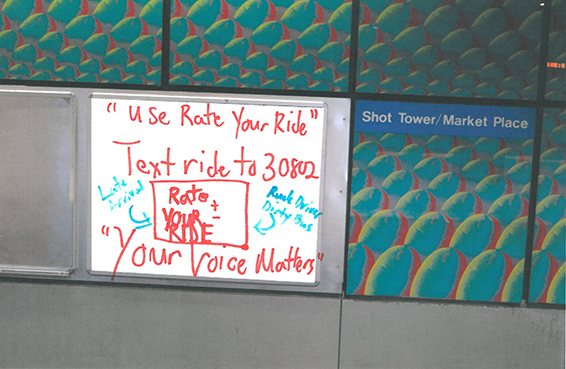 "Use Rate Your Ride"
Text ride to 30802
Late Arrival
Rate + -
YOUR
RISE
Rude Driver
Dirty Bus
"Your Voice Matters"
Shot Tower/Market Place